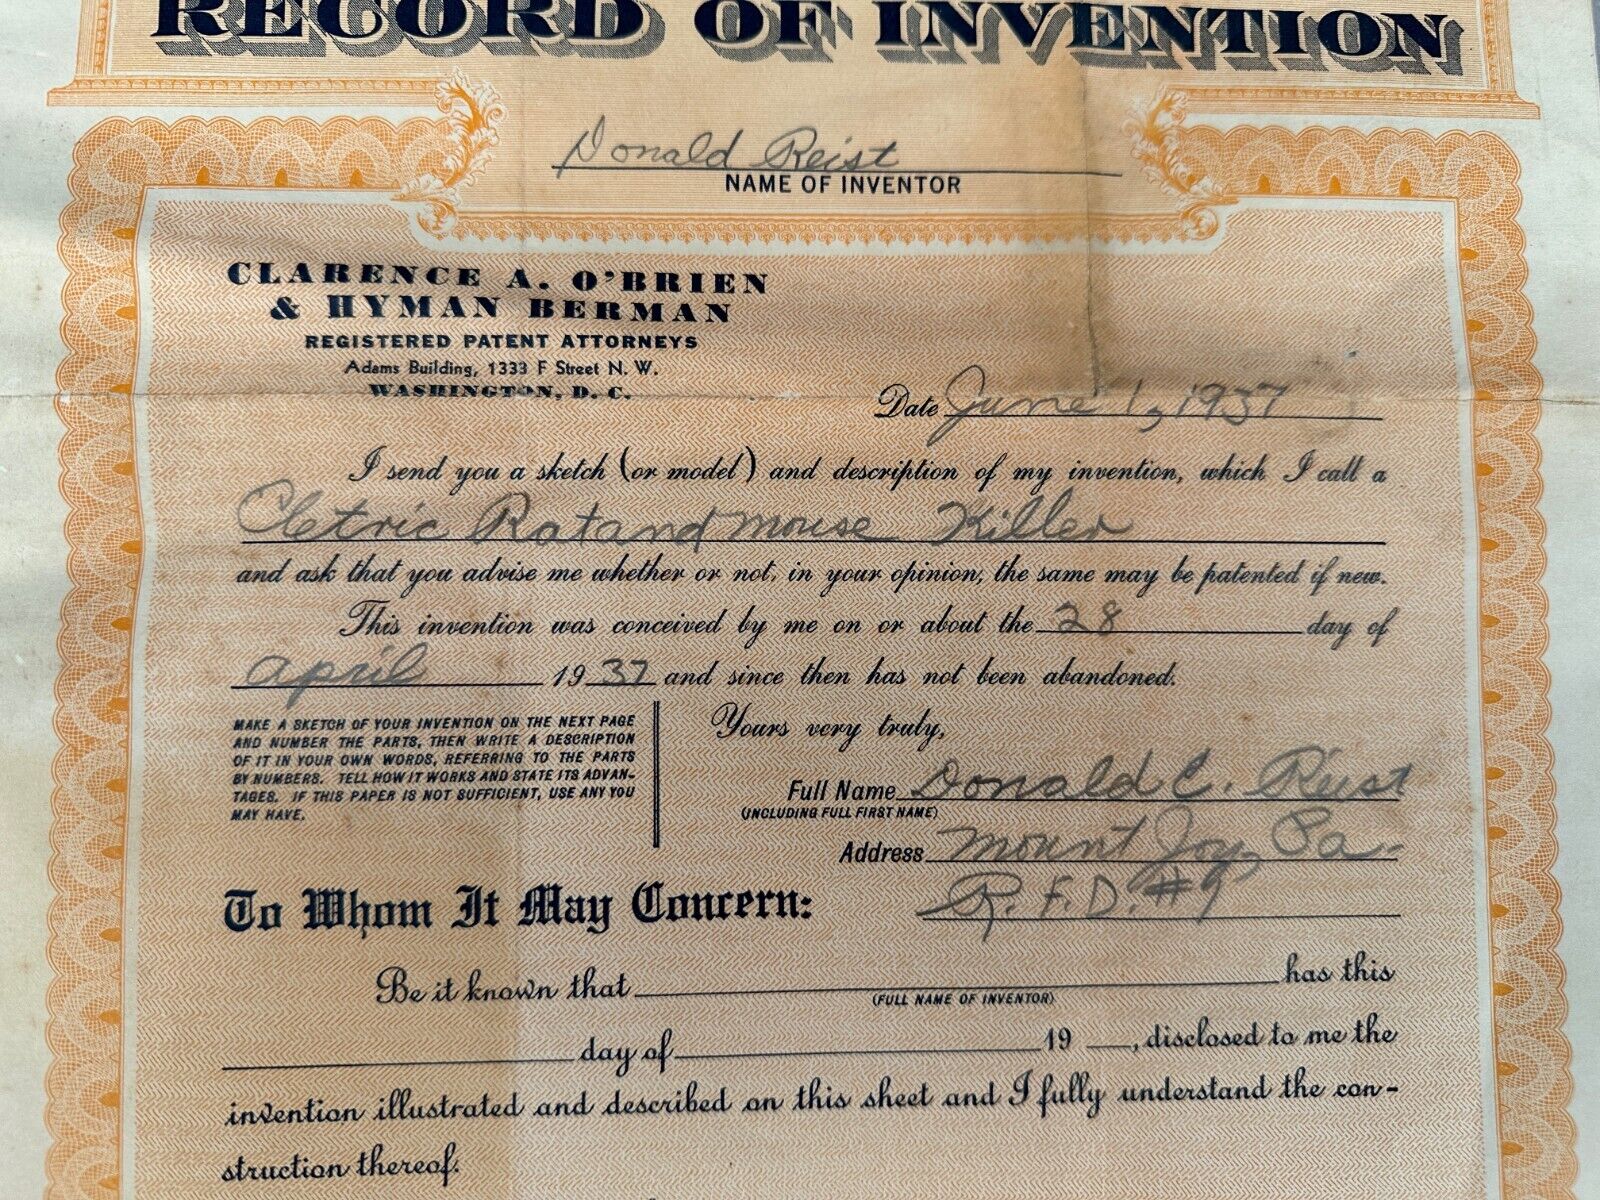 RECORD OF INVENTION
Donald Reist
NAME OF INVENTOR
CLARENCE A. O'BRIEN
& HYMAN BERMAN
REGISTERED PATENT ATTORNEYS
Adams Building, 1333 F Street N. W.
WASHINGTON, D. C.
Date June 1, 1937
I send you a sketch (or model) and description of my invention, which I call a
Eletric Rat and mouse Killer
and ask that you advise me whether or not, in your opinion, the same may be patented if new.
This invention was conceived by me on or about the 28 day of
april 1937 and since then has not been abandoned.
MAKE A SKETCH OF YOUR INVENTION ON THE NEXT PAGE
AND NUMBER THE PARTS, THEN WRITE A DESCRIPTION
OF IT IN YOUR OWN WORDS, REFERRING TO THE PARTS
BY NUMBERS. TELL HOW IT WORKS AND STATE ITS ADVAN-
TAGES. IF THIS PAPER IS NOT SUFFICIENT, USE ANY YOU
MAY HAVE.
Yours very truly,
Full Name Donald C. Reist
(INCLUDING FULL FIRST NAME)
Address Mount Joy, Pa.
R. F. D. #
To Whom It May Concern:
Be it known that has this
(FULL NAME OF INVENTOR)
day of 19 , disclosed to me the
invention illustrated and described on this sheet and I fully understand the con-
struction thereof.